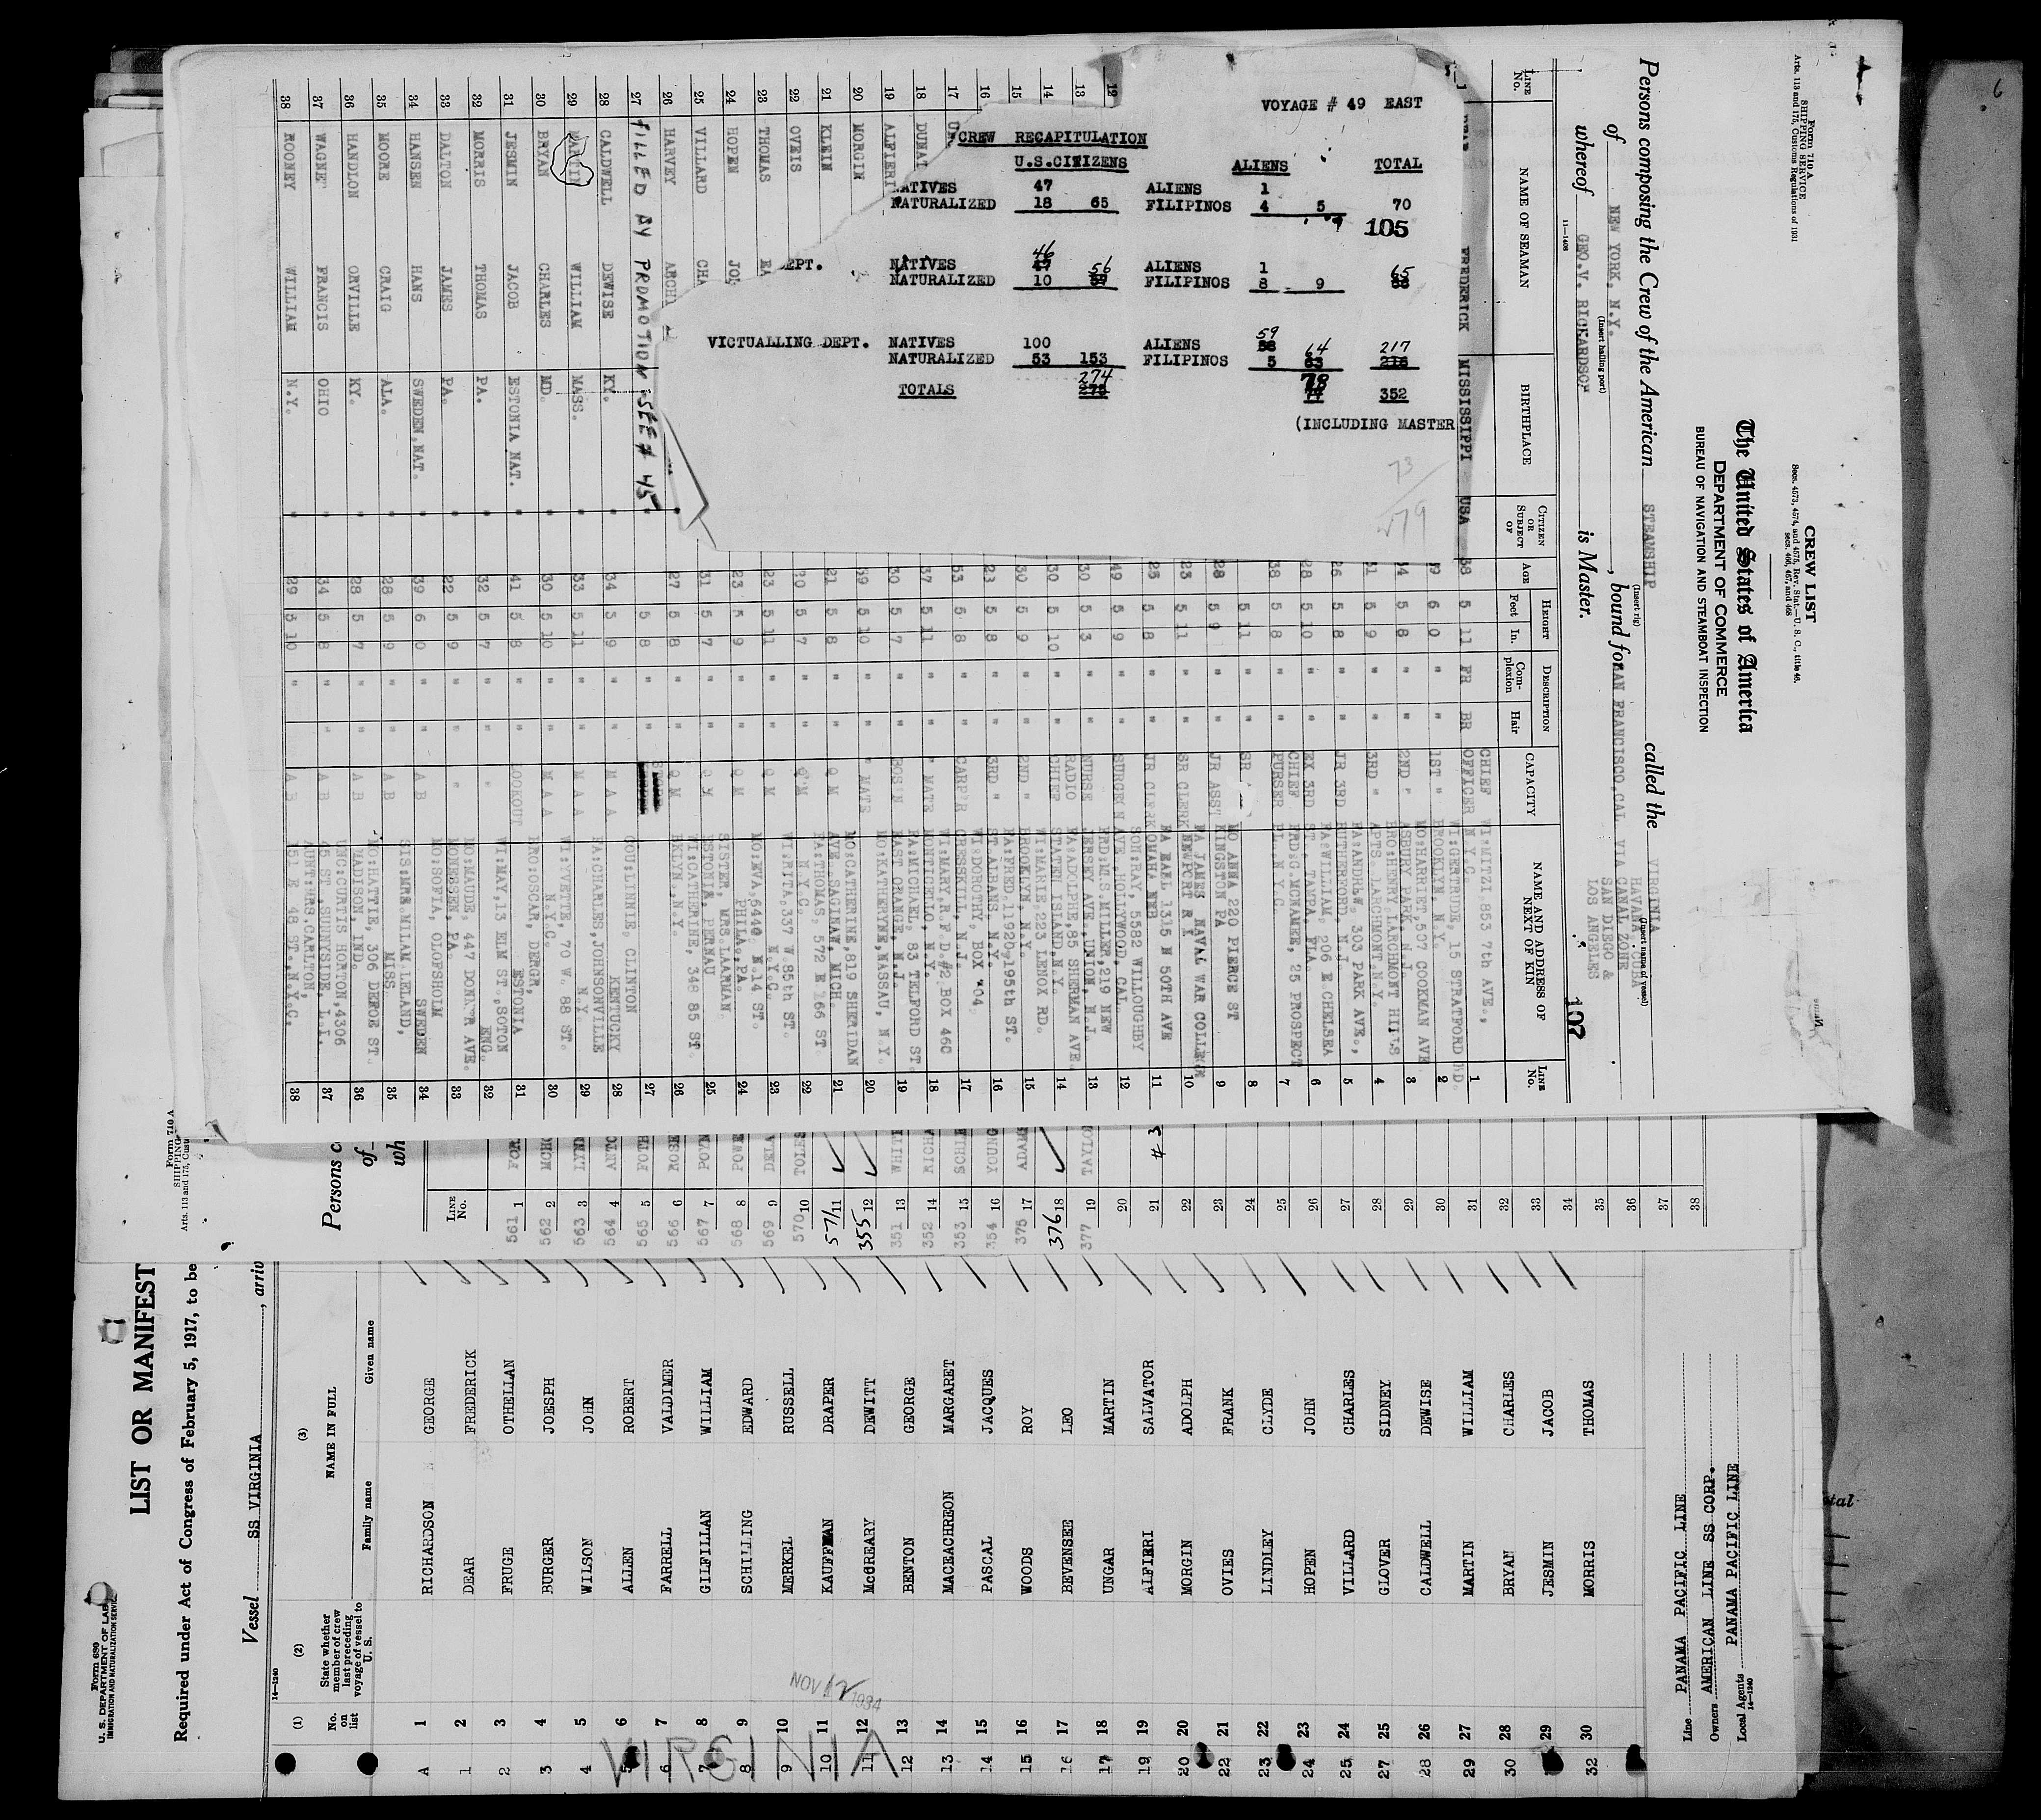 6
VOYAGE # 49 EAST
CREW RECAPITULATION
U.S.CITIZENS ALIENS TOTAL
NATIVES 47 ALIENS 1
NATURALIZED 18 65 FILIPINOS 4 5 70
105
46
DEPT. NATIVES 47 56 ALIENS 1 65
NATURALIZED 10 57 FILIPINOS 8 9
59
VICTUALLING DEPT. NATIVES 100 ALIENS 58 64 217
NATURALIZED 53 153 FILIPINOS 5 63 216
274 78
TOTALS 275 77 352
(INCLUDING MASTER
73
Form 710 A
SHIPPING SERVICE
Arts. 113 and 175, Customs Regulations of 1931
CREW LIST
Secs. 4573, 4574, and 4575, Rev. Stat.—U. S. C., title 46,
secs. 466, 467, and 468
The United States of America
DEPARTMENT OF COMMERCE
BUREAU OF NAVIGATION AND STEAMBOAT INSPECTION
Persons composing the Crew of the American STEAMSHIP called the VIRGINIA
(Insert rig) (Insert name of vessel)
of NEW YORK, N.Y. , bound for SAN FRANCISCO.CAL VIA HAVANA CUBA
CANAL ZONE
SAN DIEGO &
LOS ANGELES
(Insert hailing port)
whereof GEO.V. RICHARDSON is Master.
107
11—1408
LINE NO. NAME OF SEAMAN BIRTHPLACE CITIZEN OR SUBJECT OF AGE HEIGHT Feet In. DESCRIPTION Complexion Hair CAPACITY NAME AND ADDRESS OF NEXT OF KIN LINE NO.
1 FREDERICK MISSISSIPPI USA 38 5 11 FR BR CHIEF OFFICER WI:MITZI,853 7th AVE., N.Y.C. 1
6 0 " " 1ST " WI:GERTRUDE, 15 STRATFORD RD. BROOKLYN, N.Y. 2
5 8 " " 2ND " MO:HARRIET,507 COOKMAN AVE ASBURY PARK, N.J. 3
5 9 " " 3RD " BRO:HENRY,LARCHMONT HILLS APTS. LARCHMONT.N.Y. 4
5 8 " " JR 3RD FA:ANDREW, 303 PARK AVE., RUTHERFORD, N.J. 5
28 5 10 " " EX 3RD FA:WILLIAM, 206 E.CHELSEA ST., TAMPA, FLA. 6
38 5 8 " " CHIEF PURSER FRD:G.MCNAMEE, 25 PROSPECT PL.,N.Y.C. 7
5 11 " " SR 8
28 5 9 " " JR ASST MO ANNA 220 PIERCE ST KINGSTON PA 9
23 5 11 " " SR CLERK FA JAMES NAVAL WAR COLLEGE NEWPORT R I 10
5 8 " " JR CLERK FA EARL 1315 N 50TH AVE OMAHA NEB 11
12 49 5 9 " " SURGEON SON:RAY, 5582 WILLOUGHBY AVE. HOLLYWOOD, CAL. 12
13 30 5 3 " " NURSE FRD:M.S.MILLER,219 NEW JERSEY AVE.,UNION, N.J. 13
14 30 5 10 " " CHIEF RADIO FA:ADOLPHE,85 SHERMAN AVE STATEN ISLAND,N.Y. 14
15 30 5 9 " " 2ND " WI:MARIE,223 LENOX RD. BROOKLYN, N.Y. 15
16 23 5 8 " " 3RD " FA:FRED,11920-195th ST. ST.ALBANS, N.Y. 16
17 53 5 8 " " CARP'R WI:DOROTHY, BOX 404 CRESSKILL, N.J. 17
18 DUNA 37 5 11 " " " MATE WI:MARY,R.F.D.#2 BOX 46C MONTICELLO, N.Y. 18
19 ALFIERI 30 5 7 " " BOS'N FA:MICHAEL, 83 TELFORD ST. EAST ORANGE, N.J. 19
20 MORGIN 39 5 10 " " " MATE MO:KATHERYNE,NASSAU, N.Y. 20
21 KLEIN 21 5 8 " " Q M MO:CATHERINE,819 SHERIDAN AVE. SAGINAW, MICH. 21
22 OVEIS 5 7 " " Q M FA:THOMAS, 572 E 166 ST N.Y.C. 22
23 THOMAS 23 5 11 " " Q M WI:RITA,337 W.85th ST. N.Y.C. 23
24 HOPEN 23 5 9 " " Q M MO:EVA,6440, N.14 ST. PHILA., PA. 24
25 VILLARD CHA 31 5 7 " " Q M SISTER, MRS.LAARMAN ESTONIA, PERNAU 25
26 HARVEY ARCHI 27 5 8 " " Q M WI:CATHERINE, 345 85 ST. BKLYN., N.Y. 26
27 FILLED BY PROMOTION SEE # 45 5 8 " " 27
28 CALDWELL DEWISE KY. " 34 5 9 " " M A A COU:LINNIE, CLINTON KENTUCKY 28
29 MARTIN WILLIAM MASS. " 33 5 11 " " M A A FA:CHARLES,JOHNSONVILLE N.Y. 29
30 BRYAN CHARLES MD. " 30 5 10 " " M A A WI:YVETTE, 70 W. 88 ST. N.Y.C. 30
31 JESMIN JACOB ESTONIA NAT. " 41 5 8 " " LOOKOUT BRO:OSCAR, DERGER, ESTONIA 31
32 MORRIS THOMAS PA. " 32 5 7 " " " WI:MAY,13 ELM ST.,SOTON ENG. 32
33 DALTON JAMES PA. " 22 5 9 " " " MO:MAUDE. 447 DONNER AVE. MONESSEN, PA. 33
34 HANSEN HANS SWEDEN.NAT. " 39 6 0 " " A B MO:SOFIA, OLOFSHOLM SWEDEN 34
35 MOORE CRAIG ALA. " 28 5 9 " " A B SIS:MRS.MILAM LELAND, MISS. 35
36 HANDLON ORVILLE KY. " 28 5 7 " " A B MO:HATTIE, 306 DEFOE ST. MADISON, IND. 36
37 WAGNER FRANCIS OHIO " 34 5 8 " " A B UNC:CURTIS HOWTON,4306 45 ST.,SUNNYSIDE, L.I. 37
38 MOONEY WILLIAM N.Y. " 29 5 10 " " A B AUNT:MRS.CARLTON, 151 E 48 ST.,N.Y.C. 38
Form 710 A
SHIPPING
Arts. 113 and 175, Cust
Persons c
of
wh
LINE NO.
561 1 FOR
562 2 MCHO
563 3 LYN
564 4 ANTO
565 5 FOTH
566 6 ROSE
567 7 POYN
568 8 POWE
569 9 DELA
570 10 TOLES
571 11
355 12
351 13 WHIT
352 14 RICHA
353 15 SCHLE
354 16 YOUNG
375 17 ADAMS
376 18
377 19 TAYLO
20
21 #3
22
23
24
25
26
27
28
29
30
31
32
33
34
35
36
37
38
Form 680
U. S. DEPARTMENT OF LABOR
IMMIGRATION AND NATURALIZATION SERVICE
LIST OR MANIFEST
Required under Act of Congress of February 5, 1917, to be
Vessel SS VIRGINIA , arriv
14—1240
(1) (2) (3)
No. on list
State whether member of crew last preceding voyage of vessel to U. S.
NAME IN FULL
Family name Given name
A 1 RICHARDSON GEORGE
1 2 DEAR FREDERICK
2 3 FRUGE OTHELLAN
3 4 BURGER JOESPH
4 5 WILSON JOHN
5 6 ALLEN ROBERT
6 7 FARRELL VALDIMER
7 8 GILFILLAN WILLIAM
8 9 SCHILLING EDWARD
9 10 MERKEL RUSSELL
10 11 KAUFFMAN DRAPER
11 12 McCREARY DEWITT
12 13 BENTON GEORGE
13 14 MACEACHREON MARGARET
14 15 PASCAL JACQUES
15 16 WOODS ROY
16 17 BEVENSEE LEO
17 18 UNGAR MARTIN
19 19 ALFIERI SALVATOR
20 20 MORGIN ADOLPH
22 21 OVIES FRANK
23 22 LINDLEY CLYDE
24 23 HOPEN JOHN
25 24 VILLARD CHARLES
27 25 GLOVER SIDNEY
28 26 CALDWELL DEWISE
29 27 MARTIN WILLIAM
30 28 BRYAN CHARLES
29 JESMIN JACOB
32 30 MORRIS THOMAS
NOV 12 1934
VIRGINIA
Line PANAMA PACIFIC LINE
Owners AMERICAN LINE SS CORP.
Local Agents PANAMA PACIFIC LINE
14—1240